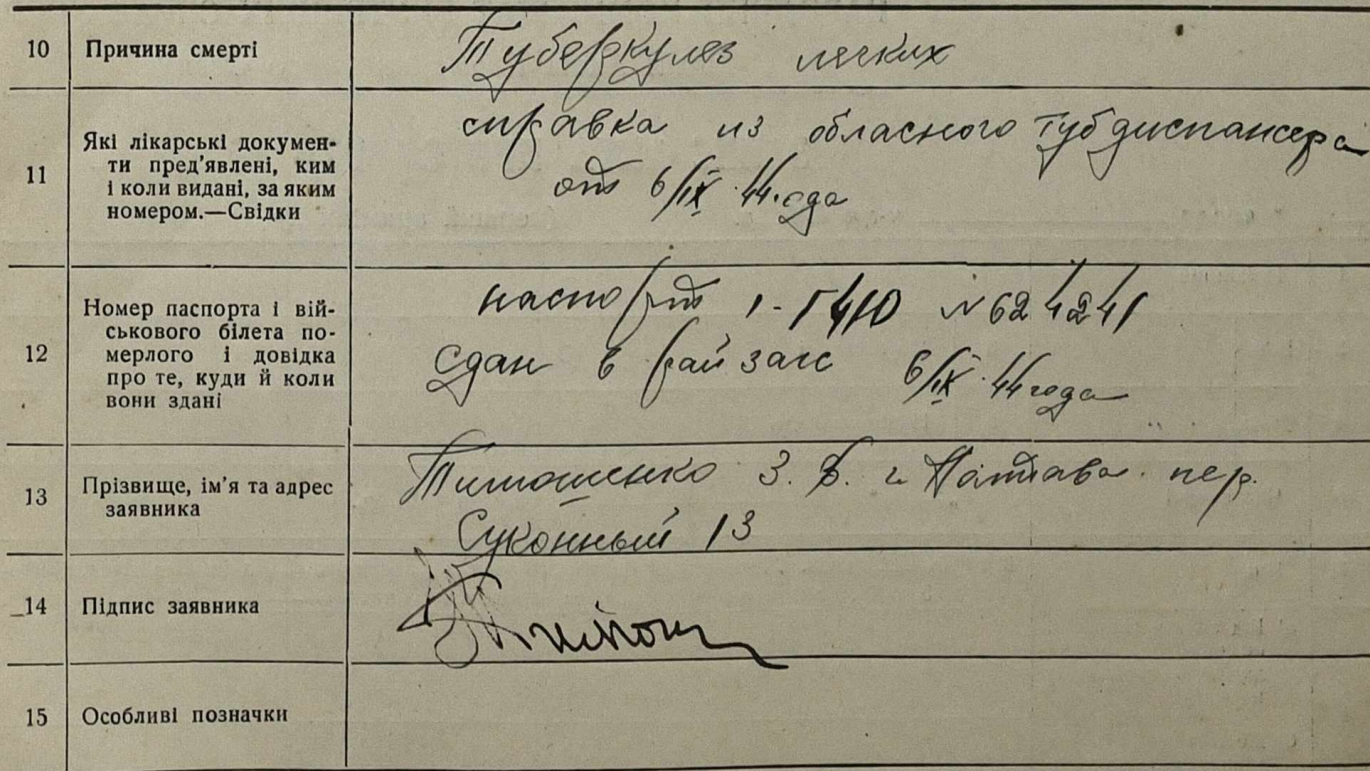 10 Причина смерті Туберкулез легких
11 Які лікарські докумен-
ти пред'явлені, ким
і коли видані, за яким
номером.—Свідки
справка из обласного Тубдиспансера
от 6/IX 44 года
12 Номер паспорта і вій-
ськового білета по-
мерлого і довідка
про те, куди й коли
вони здані
паспорт № 624241
сдан в райзагс 6/IX 44 года
13 Прізвище, ім'я та адрес
заявника
Тимошенко З. г. Полтава пер.
Суконный 13
14 Підпис заявника
15 Особливі позначки